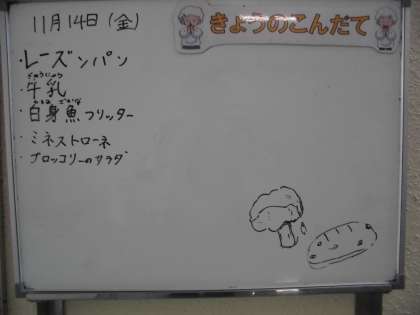 11月14日(金)
きょうのこんだて
・レーズンパン
ぎゅうにゅう
・牛乳
しろみ ざかな
・白身魚フリッター
・ミネストローネ
・ブロッコリーのサラダ